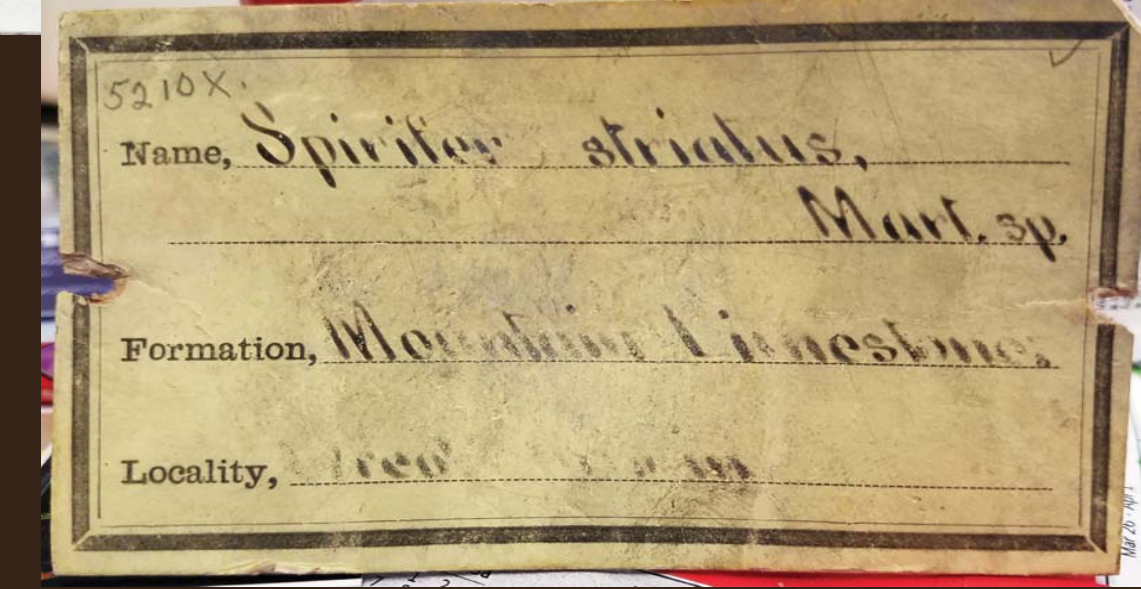 5210X.
Name, Spirifer striatus,
Mart. sp.
Formation, Mountain Limestone.
Locality,
Mar 26 - Apr 1